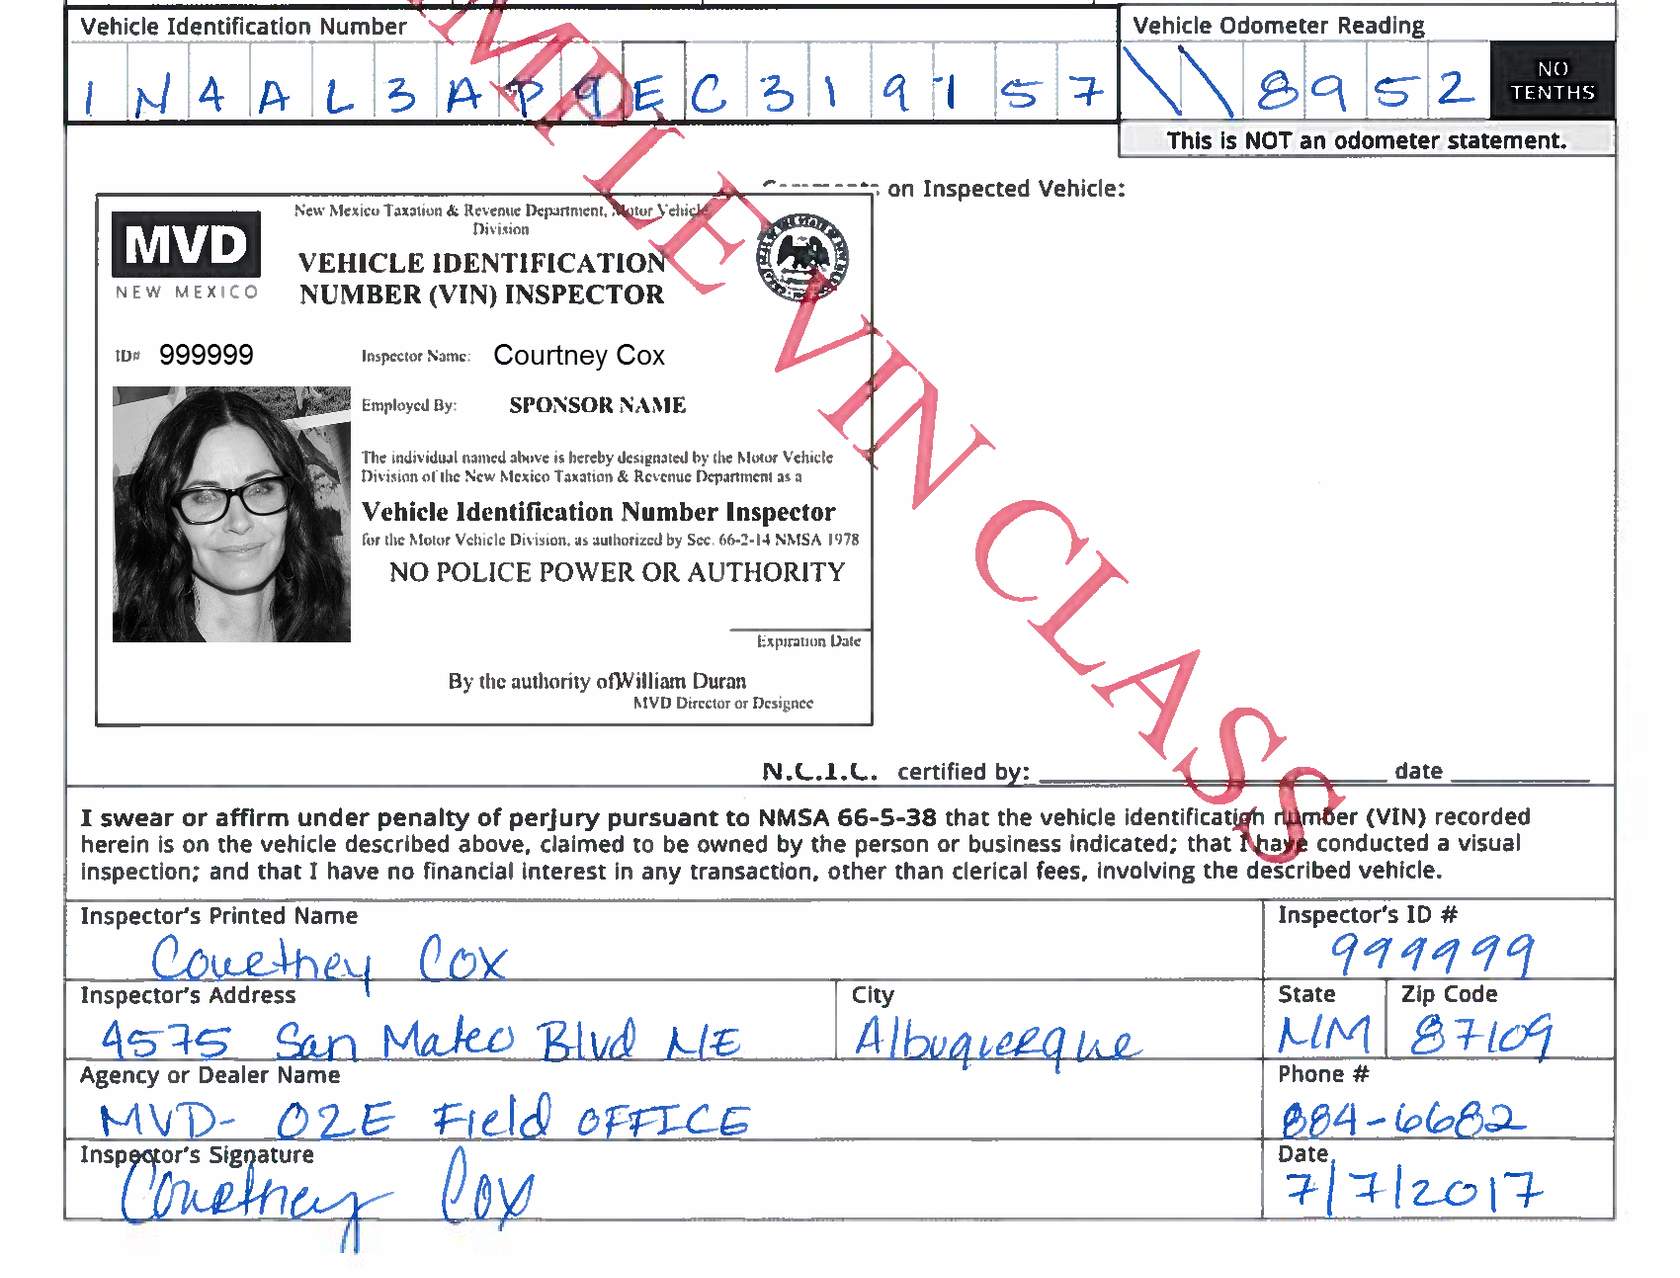 Vehicle Identification Number
Vehicle Odometer Reading
1 N 4 A L 3 A P 9 E C 3 1 9 1 5 7
\ \ 8 9 5 2
NO TENTHS
This is NOT an odometer statement.
on Inspected Vehicle:
New Mexico Taxation & Revenue Department, Motor Vehicle
Division
MVD
NEW MEXICO
VEHICLE IDENTIFICATION
NUMBER (VIN) INSPECTOR
ID# 999999
Inspector Name: Courtney Cox
Employed By: SPONSOR NAME
The individual named above is hereby designated by the Motor Vehicle
Division of the New Mexico Taxation & Revenue Department as a
Vehicle Identification Number Inspector
for the Motor Vehicle Division, as authorized by Sec. 66-2-14 NMSA 1978
NO POLICE POWER OR AUTHORITY
Expiration Date
By the authority of William Duran
MVD Director or Designee
MPLE VIN CLASS
N.C.I.C. certified by: date
I swear or affirm under penalty of perjury pursuant to NMSA 66-5-38 that the vehicle identification number (VIN) recorded
herein is on the vehicle described above, claimed to be owned by the person or business indicated; that I have conducted a visual
inspection; and that I have no financial interest in any transaction, other than clerical fees, involving the described vehicle.
Inspector's Printed Name
Courtney Cox
Inspector's ID #
999999
Inspector's Address
4575 San Mateo Blvd NE
City
Albuquerque
State
NM
Zip Code
87109
Agency or Dealer Name
MVD- 02E Field OFFICE
Phone #
884-6682
Inspector's Signature
Courtney Cox
Date
7/7/2017